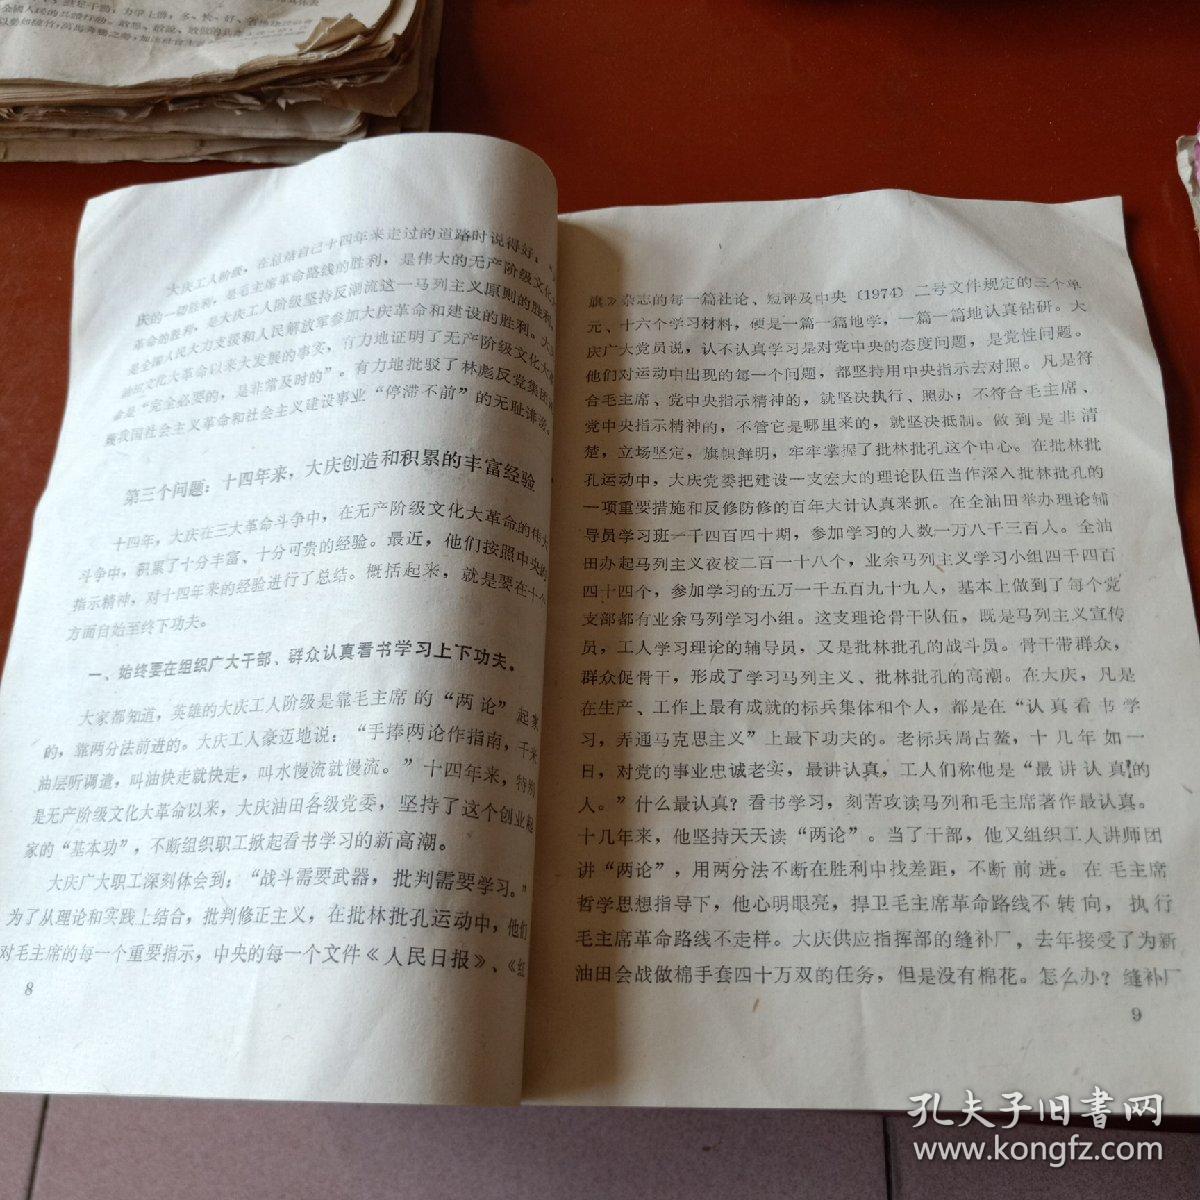 大庆工人阶级，在总结自己十四年来走过的道路时说得好，
庆的一切胜利，是毛主席革命路线的胜利，是伟大的无产阶级文化
革命的胜利，是大庆工人阶级坚持反潮流这一马列主义原则的胜利，
是全国人民大力支援和人民解放军参加大庆革命和建设的胜利。大
油田文化大革命以来大发展的事实，有力地证明了无产阶级文化大
命是“完全必要的，是非常及时的”。有力地批驳了林彪反党集团
蔑我国社会主义革命和社会主义建设事业“停滞不前”的无耻诽谤。
第三个问题：十四年来，大庆创造和积累的丰富经验
十四年，大庆在三大革命斗争中，在无产阶级文化大革命的伟大
斗争中，积累了十分丰富、十分可贵的经验。最近，他们按照中央的
指示精神，对十四年来的经验进行了总结。概括起来，就是要在十个
方面自始至终下功夫。
一、始终要在组织广大干部、群众认真看书学习上下功夫。
大家都知道，英雄的大庆工人阶级是靠毛主席的“两论”起家
的，靠两分法前进的。大庆工人豪迈地说：“手捧两论作指南，千米
油层听调遣，叫油快走就快走，叫水慢流就慢流。”十四年来，特别
是无产阶级文化大革命以来，大庆油田各级党委，坚持了这个创业起
家的“基本功”，不断组织职工掀起看书学习的新高潮。
大庆广大职工深刻体会到：“战斗需要武器，批判需要学习。”
为了从理论和实践上结合，批判修正主义，在批林批孔运动中，他们
对毛主席的每一个重要指示，中央的每一个文件《人民日报》、《红
8
旗》杂志的每一篇社论、短评及中央（1974）二号文件规定的三个单
元、十六个学习材料，硬是一篇一篇地学，一篇一篇地认真钻研。大
庆广大党员说，认不认真学习是对党中央的态度问题，是党性问题。
他们对运动中出现的每一个问题，都坚持用中央指示去对照。凡是符
合毛主席、党中央指示精神的，就坚决执行、照办；不符合毛主席、
党中央指示精神的，不管它是哪里来的，就坚决抵制。做到是非清
楚，立场坚定，旗帜鲜明，牢牢掌握了批林批孔这个中心。在批林批
孔运动中，大庆党委把建设一支宏大的理论队伍当作深入批林批孔的
一项重要措施和反修防修的百年大计认真来抓。在全油田举办理论辅
导员学习班一千四百四十期，参加学习的人数一万八千三百人。全油
田办起马列主义夜校二百一十八个，业余马列主义学习小组四千四百
四十四个，参加学习的五万一千五百九十九人，基本上做到了每个党
支部都有业余马列学习小组。这支理论骨干队伍，既是马列主义宣传
员，工人学习理论的辅导员，又是批林批孔的战斗员。骨干带群众，
群众促骨干，形成了学习马列主义、批林批孔的高潮。在大庆，凡是
在生产、工作上最有成就的标兵集体和个人，都是在“认真看书学
习，弄通马克思主义”上最下功夫的。老标兵周占鳌，十几年如一
日，对党的事业忠诚老实，最讲认真，工人们称他是“最讲认真的
人。”什么最认真？看书学习，刻苦攻读马列和毛主席著作最认真。
十几年来，他坚持天天读“两论”。当了干部，他又组织工人讲师团
讲“两论”，用两分法不断在胜利中找差距，不断前进。在毛主席
哲学思想指导下，他心明眼亮，捍卫毛主席革命路线不转向，执行
毛主席革命路线不走样。大庆供应指挥部的缝补厂，去年接受了为新
油田会战做棉手套四十万双的任务，但是没有棉花。怎么办？缝补厂
9
孔夫子旧书网
www.kongfz.com